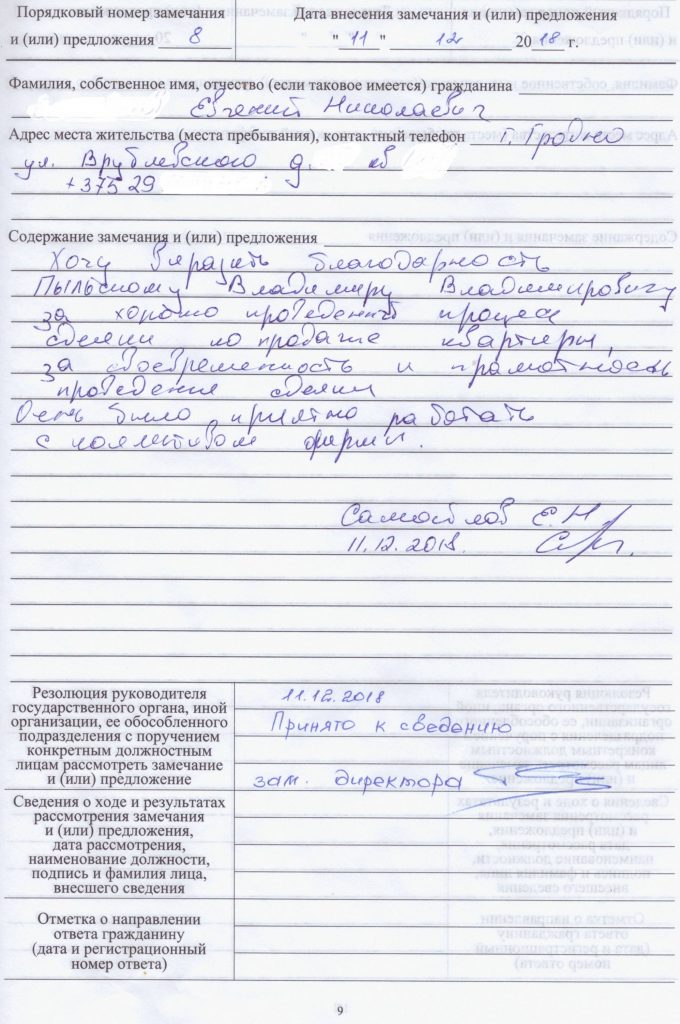 Порядковый номер замечания
и (или) предложения 8
Дата внесения замечания и (или) предложения
" 11 " 12 2018 г.
Фамилия, собственное имя, отчество (если таковое имеется) гражданина
Евгений Николаевич
Адрес места жительства (места пребывания), контактный телефон г. Гродно
ул. Врублевского д. кв
+375 29
Содержание замечания и (или) предложения
Хочу выразить благодарность
Пыльскому Владимиру Владимировичу
за хорошо проведенный процес
сделки по продаже квартиры,
за своевременность и грамотность
проведения сделки
Очень было приятно работать
с коллективом фирмы.
Е.Н.
11.12.2018.
Резолюция руководителя
государственного органа, иной
организации, ее обособленного
подразделения с поручением
конкретным должностным
лицам рассмотреть замечание
и (или) предложение
11.12.2018
Принято к сведению
зам. директора
Сведения о ходе и результатах
рассмотрения замечания
и (или) предложения,
дата рассмотрения,
наименование должности,
подпись и фамилия лица,
внесшего сведения
Отметка о направлении
ответа гражданину
(дата и регистрационный
номер ответа)
9